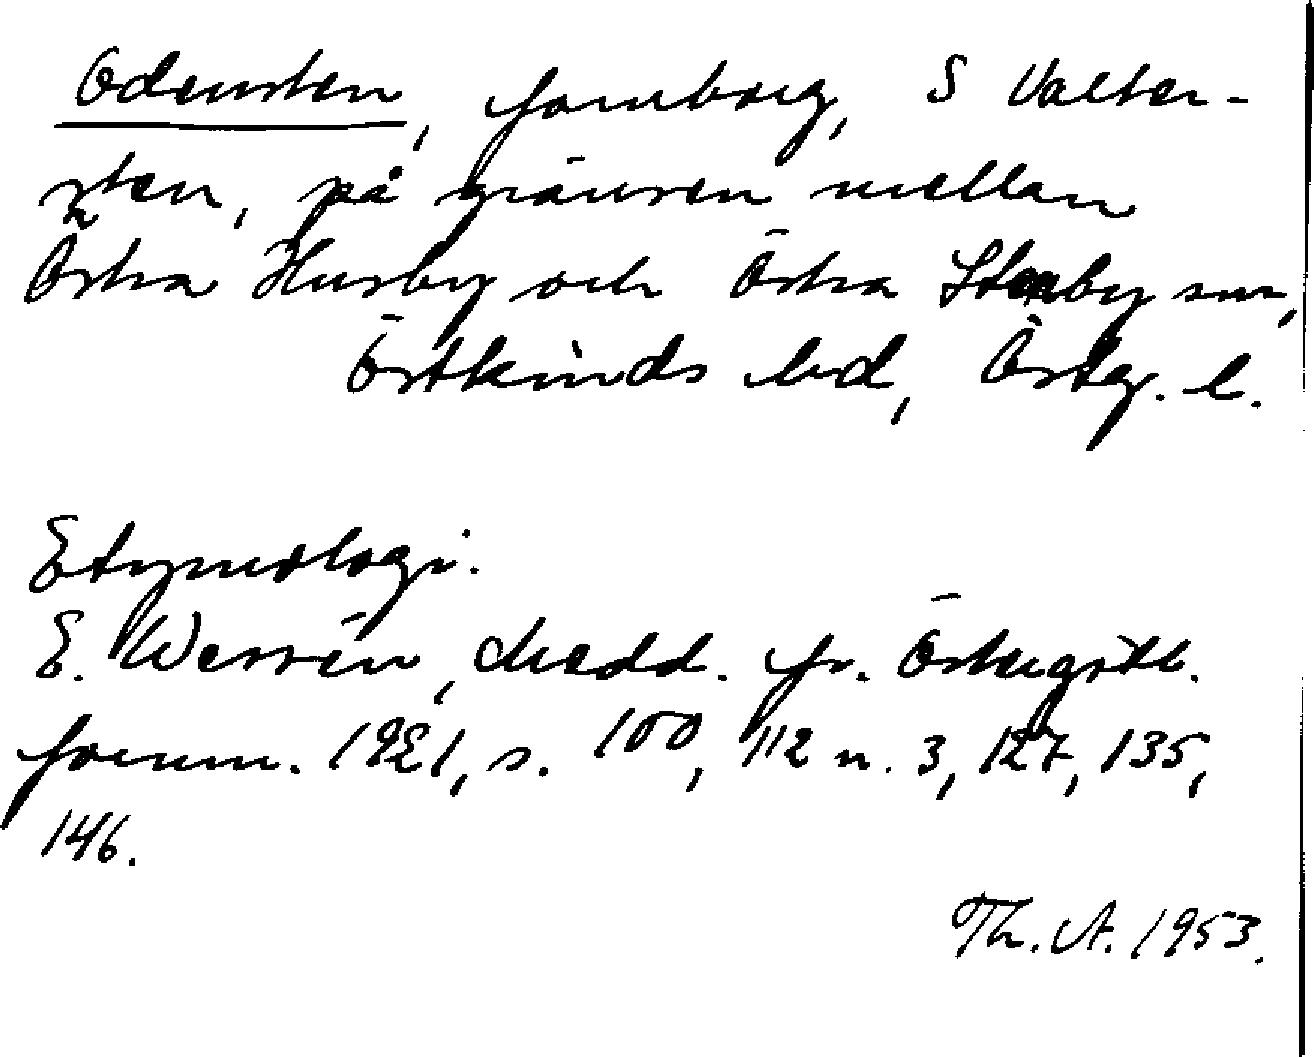 Odensten, fornborg, S Valter-
sten, på gränsen mellan
Östra Husby och Östra Stenby snr,
Östkinds hd, Östg. l.
Etymologi.
E. Wessén, Medd. fr. Östergötl.
fornm. 1921, s. 100, 112 n. 3, 127, 135,
146.
Th. A. 1953.